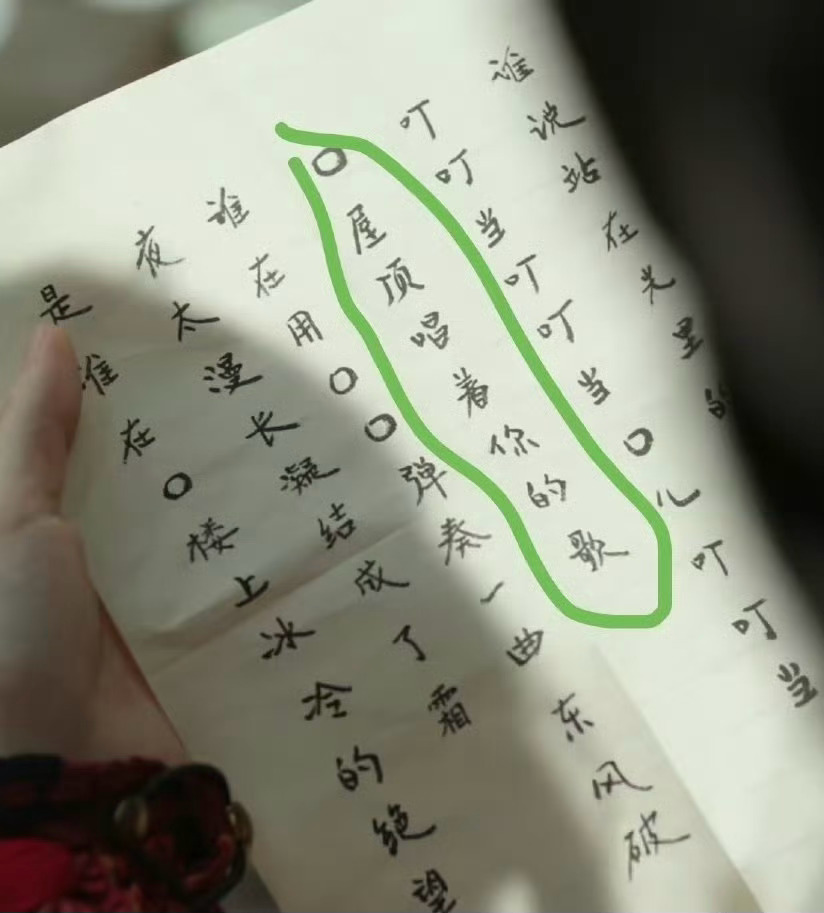 谁说站在光里的
叮叮当叮叮当○儿叮叮当
○屋顶唱着你的歌
谁在用○○弹奏一曲东风破
夜太漫长凝结成了霜
是谁在○楼上冰冷的绝望